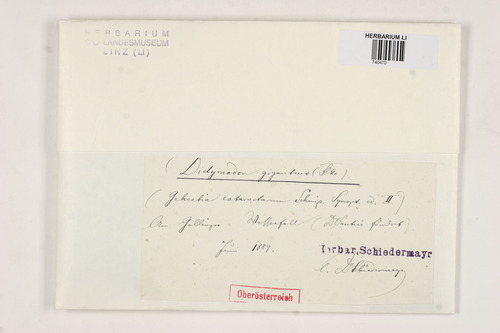 HERBARIUM
LANDESMUSEUM
LINZ (LI)
HERBARIUM LI
740470
(Didymodon giganteus (Fk.)
(Geheebia cataractarum Schimp. Synops. ed. II.)
Am Gollinger-Wasserfall
Juni 1889.
Herbar, Schiedermayr
C. Schiedermayr
Oberösterreich